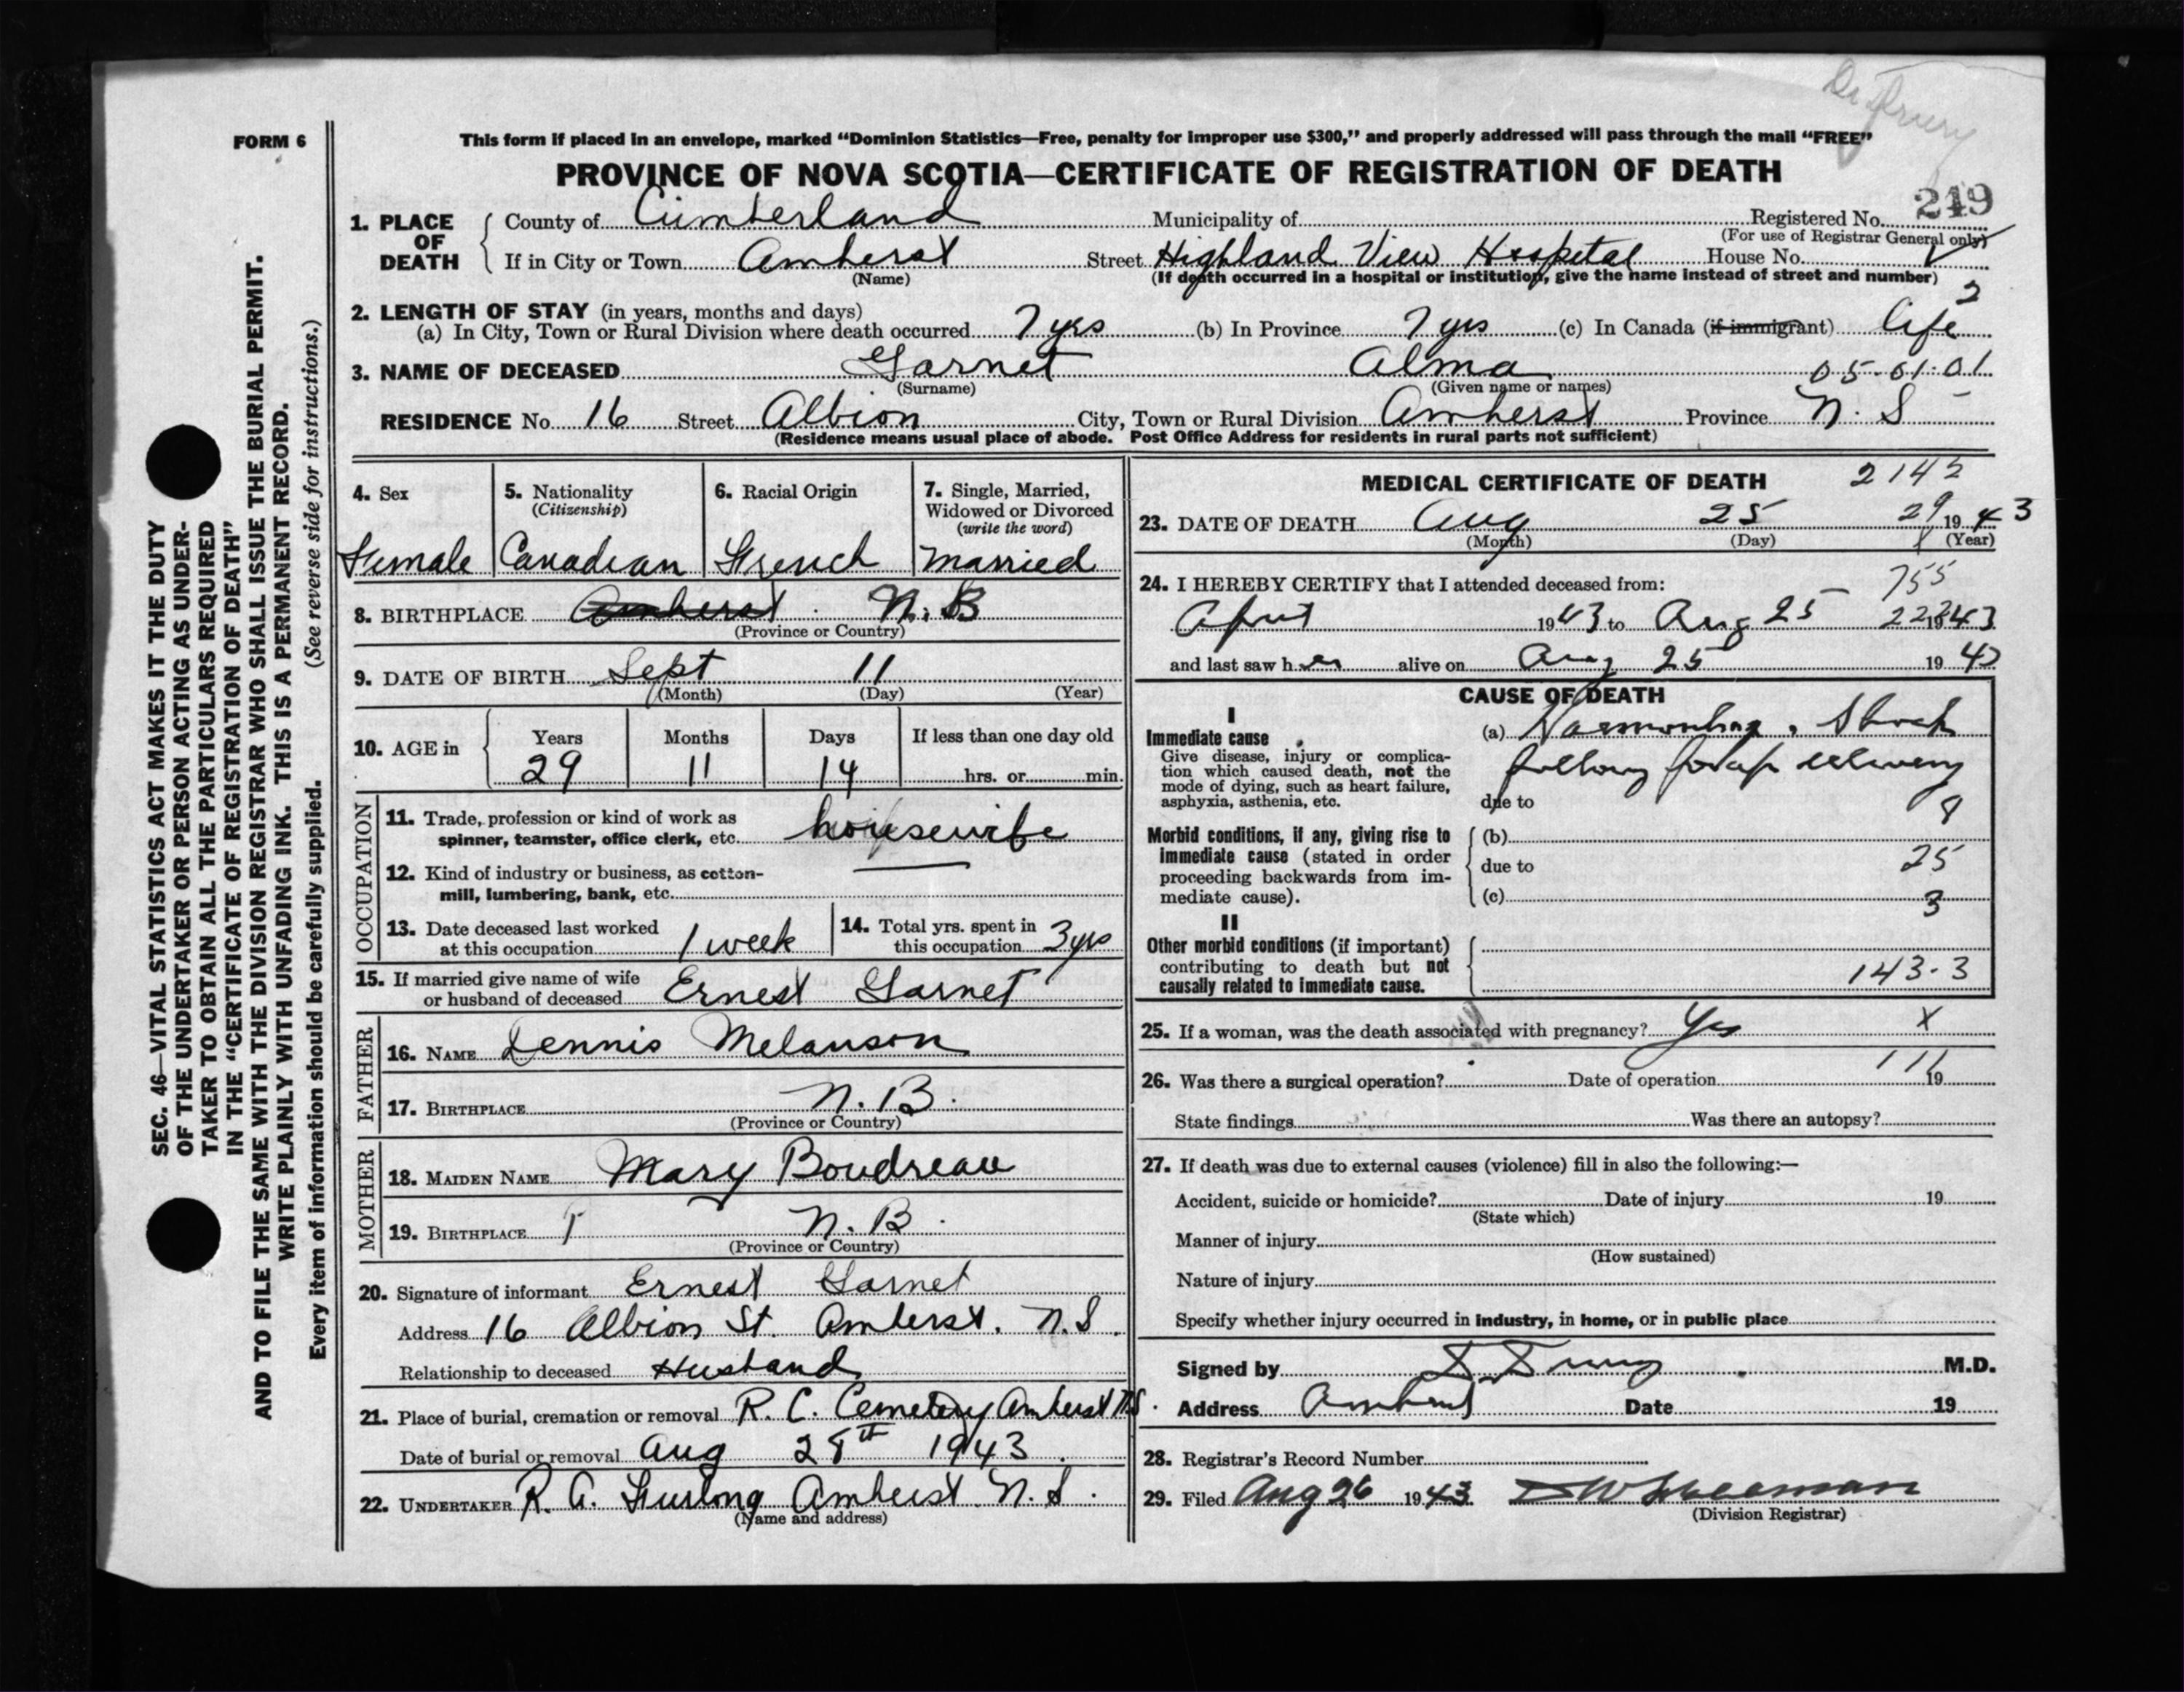 Dr. Drury
FORM 6
This form if placed in an envelope, marked “Dominion Statistics—Free, penalty for improper use $300,” and properly addressed will pass through the mail “FREE”
PROVINCE OF NOVA SCOTIA—CERTIFICATE OF REGISTRATION OF DEATH
249
1. PLACE OF DEATH County of Cumberland Municipality of Registered No.
(For use of Registrar General only)
If in City or Town Amherst Street Highland View Hospital House No.
(Name) (If death occurred in a hospital or institution, give the name instead of street and number)
2. LENGTH OF STAY (in years, months and days) 2
(a) In City, Town or Rural Division where death occurred 7 yrs (b) In Province 7 yrs (c) In Canada (if immigrant) Life
3. NAME OF DECEASED Garnet Alma 05-01-01
(Surname) (Given name or names)
RESIDENCE No. 16 Street Albion City, Town or Rural Division Amherst Province N. S
(Residence means usual place of abode. Post Office Address for residents in rural parts not sufficient)
4. Sex
Female
5. Nationality
(Citizenship)
Canadian
6. Racial Origin
French
7. Single, Married,
Widowed or Divorced
(write the word)
Married
8. BIRTHPLACE Amherst N. B
(Province or Country)
9. DATE OF BIRTH Sept 11
(Month) (Day) (Year)
10. AGE in Years Months Days If less than one day old
29 11 14 hrs. or min.
OCCUPATION
11. Trade, profession or kind of work as
spinner, teamster, office clerk, etc. housewife
12. Kind of industry or business, as cotton-
mill, lumbering, bank, etc.
13. Date deceased last worked
at this occupation 1 week
14. Total yrs. spent in
this occupation 3 yrs
15. If married give name of wife
or husband of deceased Ernest Garnet
FATHER
16. NAME Dennis Melanson
17. BIRTHPLACE N. B.
(Province or Country)
MOTHER
18. MAIDEN NAME Mary Boudreau
19. BIRTHPLACE N. B.
(Province or Country)
20. Signature of informant Ernest Garnet
Address 16 Albion St. Amherst. N. S.
Relationship to deceased Husband
21. Place of burial, cremation or removal R. C. Cemetery Amherst N.S.
Date of burial or removal Aug 28th 1943
22. UNDERTAKER R. A. Furlong Amherst. N. S.
(Name and address)
MEDICAL CERTIFICATE OF DEATH 2142
23. DATE OF DEATH Aug 25 29 1943
(Month) (Day) (Year)
24. I HEREBY CERTIFY that I attended deceased from: 755
April 1943 to Aug 25 222 1943
and last saw her alive on Aug 25 1943
CAUSE OF DEATH
I
Immediate cause
Give disease, injury or complica-
tion which caused death, not the
mode of dying, such as heart failure,
asphyxia, asthenia, etc.
(a) Haemorrhage, Shock
following forcep delivery
due to
8
Morbid conditions, if any, giving rise to
immediate cause (stated in order
proceeding backwards from im-
mediate cause).
(b)
due to 25
(c) 3
II
Other morbid conditions (if important)
contributing to death but not
causally related to immediate cause.
143-3
25. If a woman, was the death associated with pregnancy? Yes X
26. Was there a surgical operation? Date of operation 19
State findings Was there an autopsy?
27. If death was due to external causes (violence) fill in also the following:—
Accident, suicide or homicide? Date of injury 19
(State which)
Manner of injury
(How sustained)
Nature of injury
Specify whether injury occurred in industry, in home, or in public place
Signed by D. Drury M.D.
Address Amherst Date 19
28. Registrar's Record Number
29. Filed Aug 26 1943
(Division Registrar)
SEC. 46—VITAL STATISTICS ACT MAKES IT THE DUTY
OF THE UNDERTAKER OR PERSON ACTING AS UNDER-
TAKER TO OBTAIN ALL THE PARTICULARS REQUIRED
IN THE “CERTIFICATE OF REGISTRATION OF DEATH”
AND TO FILE THE SAME WITH THE DIVISION REGISTRAR WHO SHALL ISSUE THE BURIAL PERMIT.
WRITE PLAINLY WITH UNFADING INK. THIS IS A PERMANENT RECORD.
Every item of information should be carefully supplied. (See reverse side for instructions.)